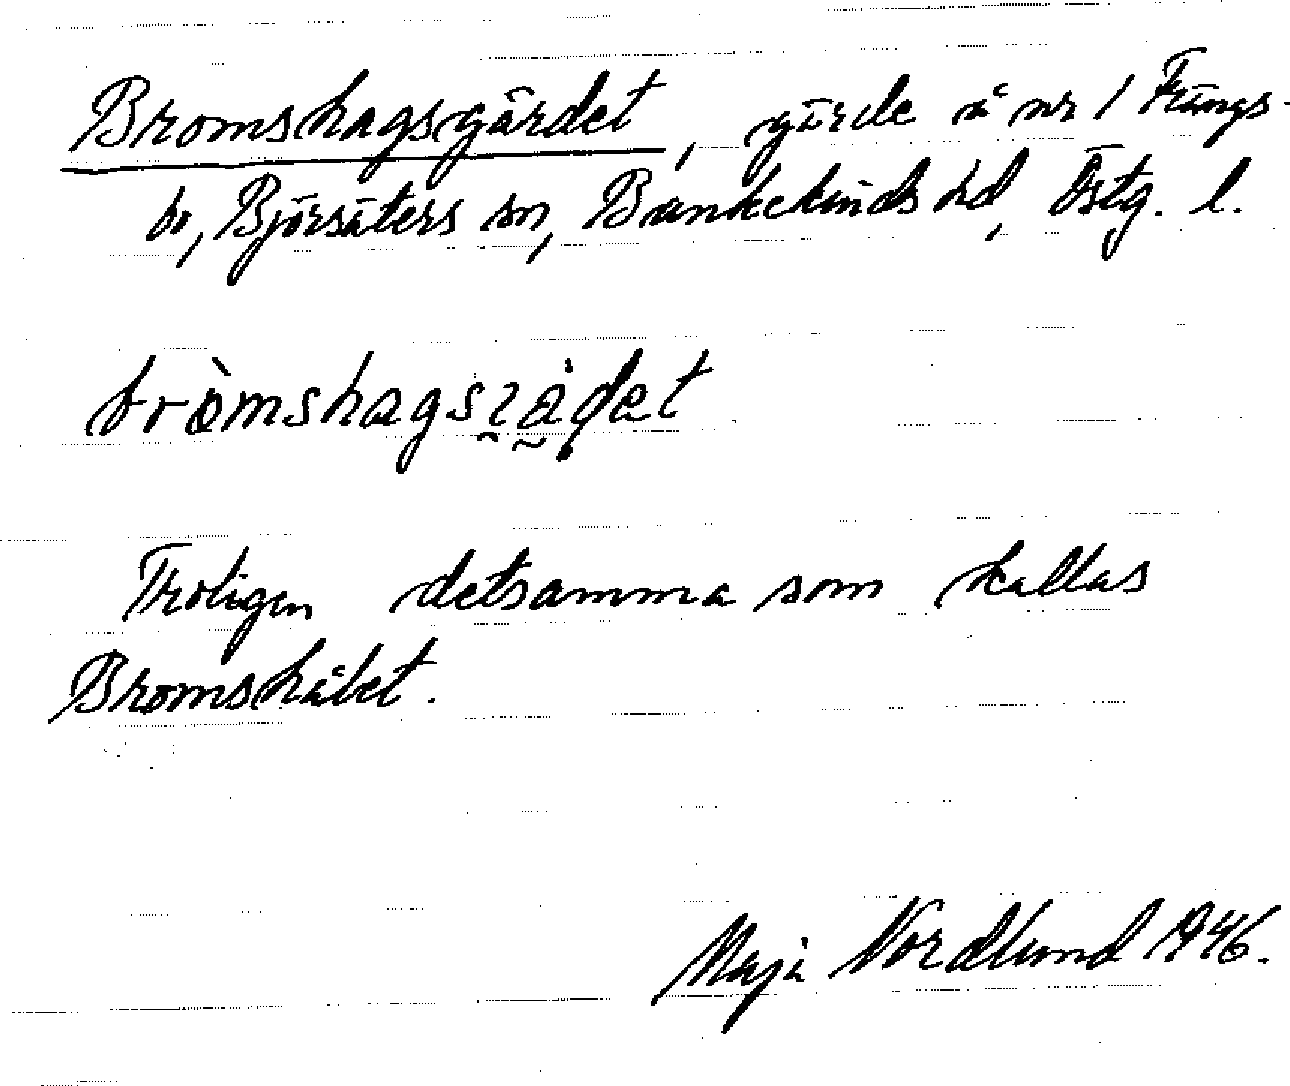 Bromshagsgärdet, gärde å nr 1 Frängs-
bo, Björsäters sn, Bankekinds hd, Östg. l.
Troligen detsamma som kallas
Bromshålet.
Maja Nordlund 1946.